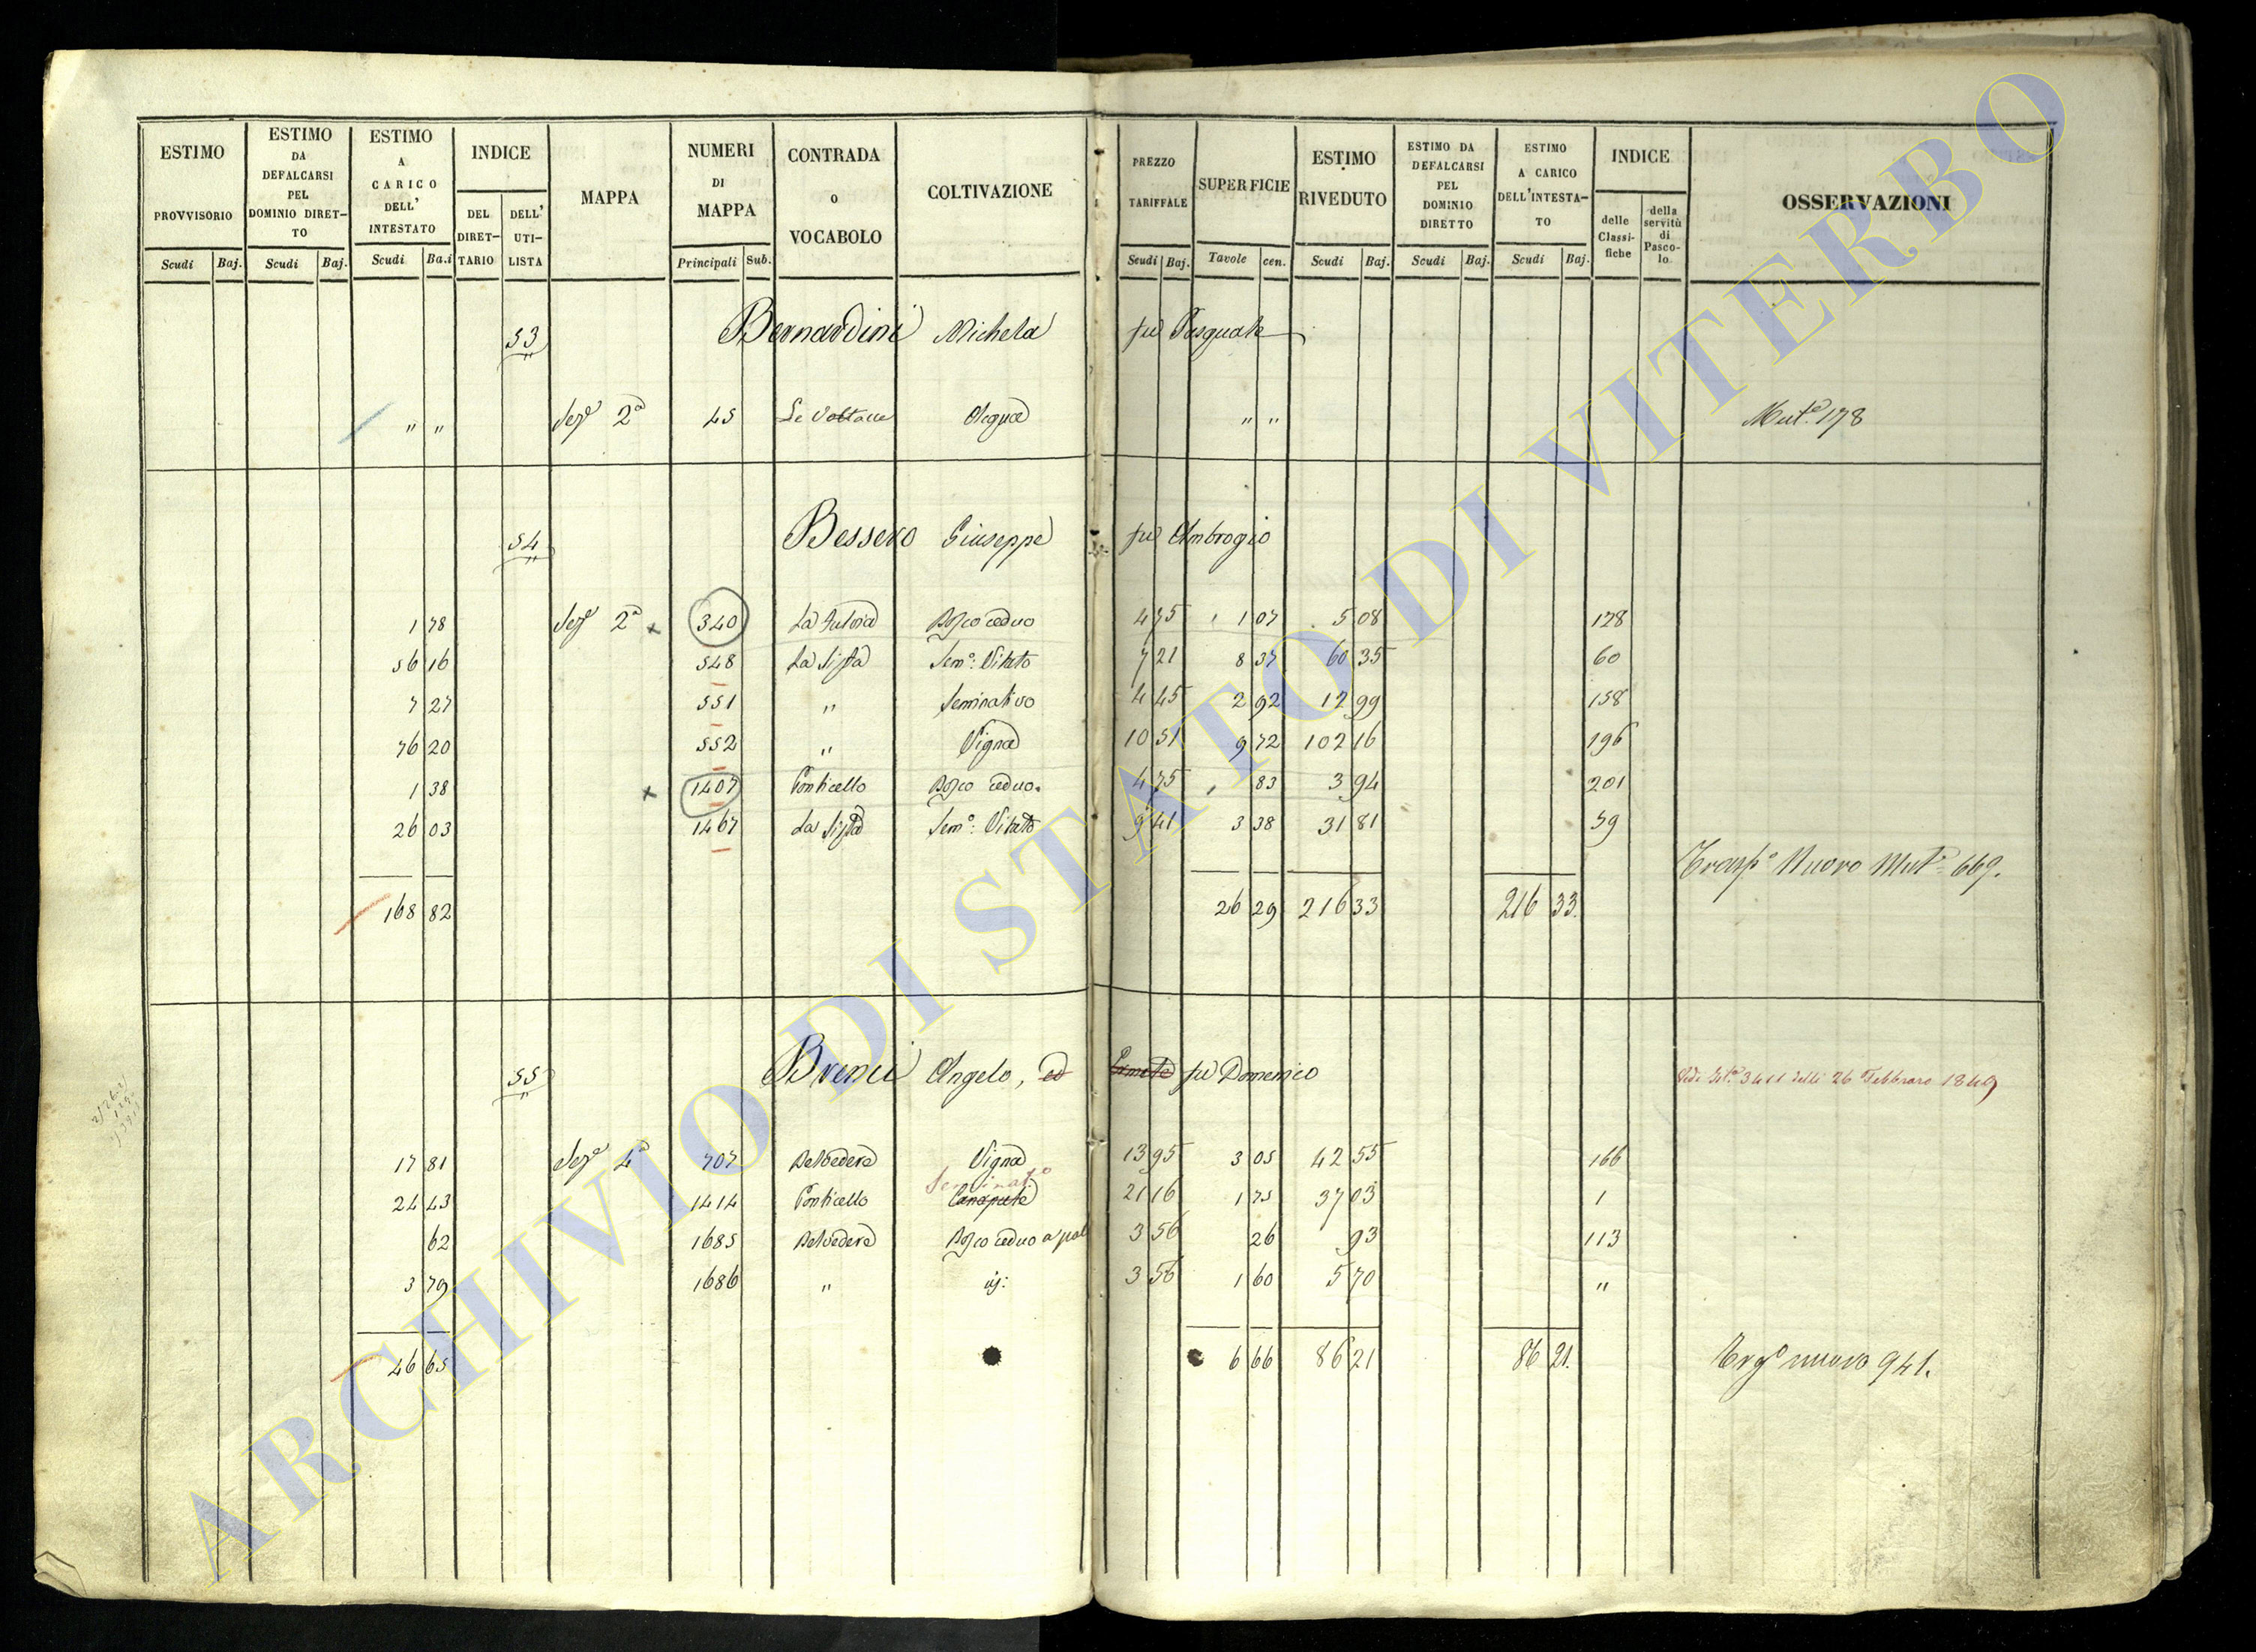 ESTIMO PROVVISORIO Scudi Baj.
ESTIMO DA DEFALCARSI PEL DOMINIO DIRET- TO Scudi Baj.
ESTIMO A CARICO DELL' INTESTATO Scudi Ba.i
INDICE DEL DIRET- TARIO DELL' UTI- LISTA
MAPPA
NUMERI DI MAPPA Principali Sub.
CONTRADA o VOCABOLO
COLTIVAZIONE
PREZZO TARIFFALE Scudi Baj.
SUPERFICIE Tavole cen.
ESTIMO RIVEDUTO Scudi Baj.
ESTIMO DA DEFALCARSI PEL DOMINIO DIRETTO Scudi Baj.
ESTIMO A CARICO DELL'INTESTA- TO Scudi Baj.
INDICE delle Classi- fiche della servitù di Pasco- lo
OSSERVAZIONI
53 Bernardini Michela fu Pasquale
" " Sez.e 2a 45 Le Acqua " " Mut.e 178
54 Bessero Giuseppe fu Ambrogio
1 78 Sez.e 2a x 340 La Bosco ceduo 4 75 1 07 5 08 128
56 16 548 Sem.o Vitato 7 21 8 37 60 35 60
7 27 551 " Seminativo 4 45 2 92 12 99 158
76 20 552 " Vigna 10 51 9 72 102 16 196
1 38 x 1407 Ponticello Bosco ceduo. 4 75 83 3 94 201
26 03 1467 Sem.o Vitato 9 41 3 38 31 81 59
Trasp.o Nuovo Mut.e 669.
168 82 26 29 216 33 216 33
55 Angelo, ed fu Domenico 26 Febbraro 1849
17 81 Sez.e 4a 707 Belvedere Vigna 13 95 3 05 42 55 166
Seminat.o
24 43 1414 Ponticello Canapule 21 16 1 75 37 03 1
62 1685 Belvedere Bosco ceduo a pal 3 56 26 93 113
3 79 1686 " 3 56 1 60 5 70 "
46 65 6 66 86 21 86 21. nuovo 941.
ARCHIVIO DI STATO DI VITERBO